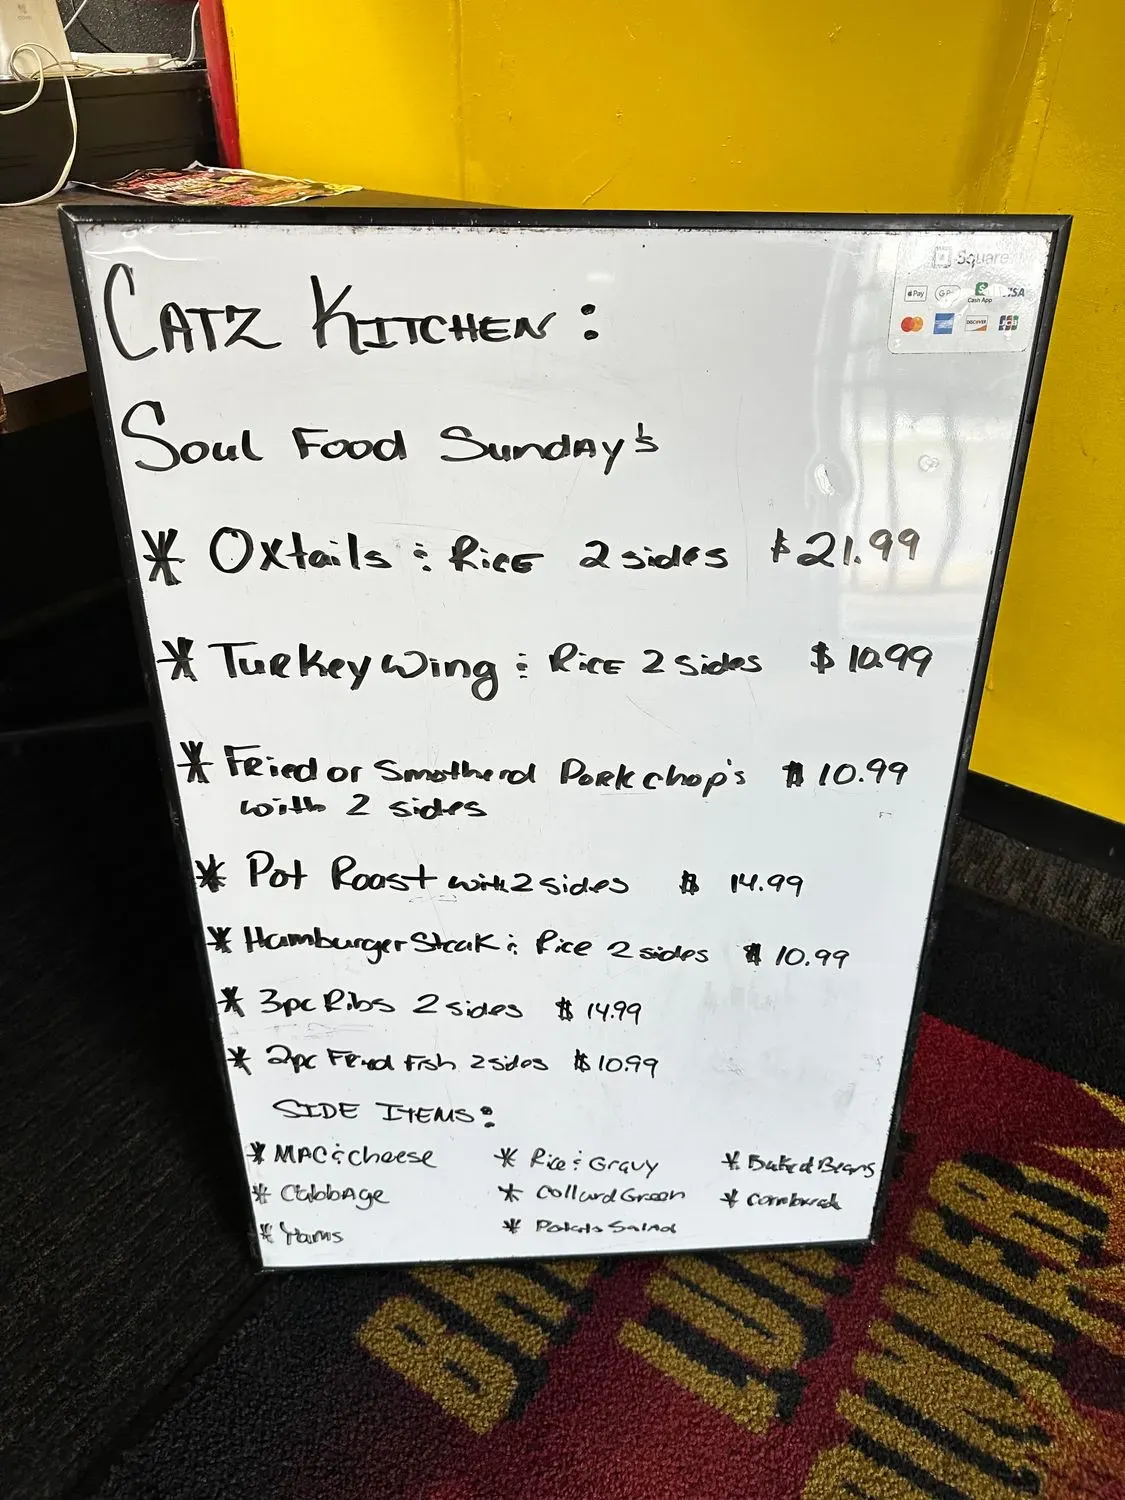 Square
Pay GPay Cash App VISA
DISCOVER JCB
CATZ KITCHEN:
Soul Food Sunday's
* Oxtails & Rice 2 sides $21.99
* Turkey Wing & Rice 2 sides $10.99
* Fried or Smotherd Porkchop's $10.99
with 2 sides
* Pot Roast with 2 sides $14.99
* Hamburger Steak & Rice 2 sides $10.99
* 3pc Ribs 2 sides $14.99
* 2pc Fried Fish 2 sides $10.99
SIDE ITEMS:
* MAC & Cheese * Rice & Gravy * Baked Beans
* Cabbage * Collard Green * Cornbread
* Yams * Potato Salad
LUN
DINNER